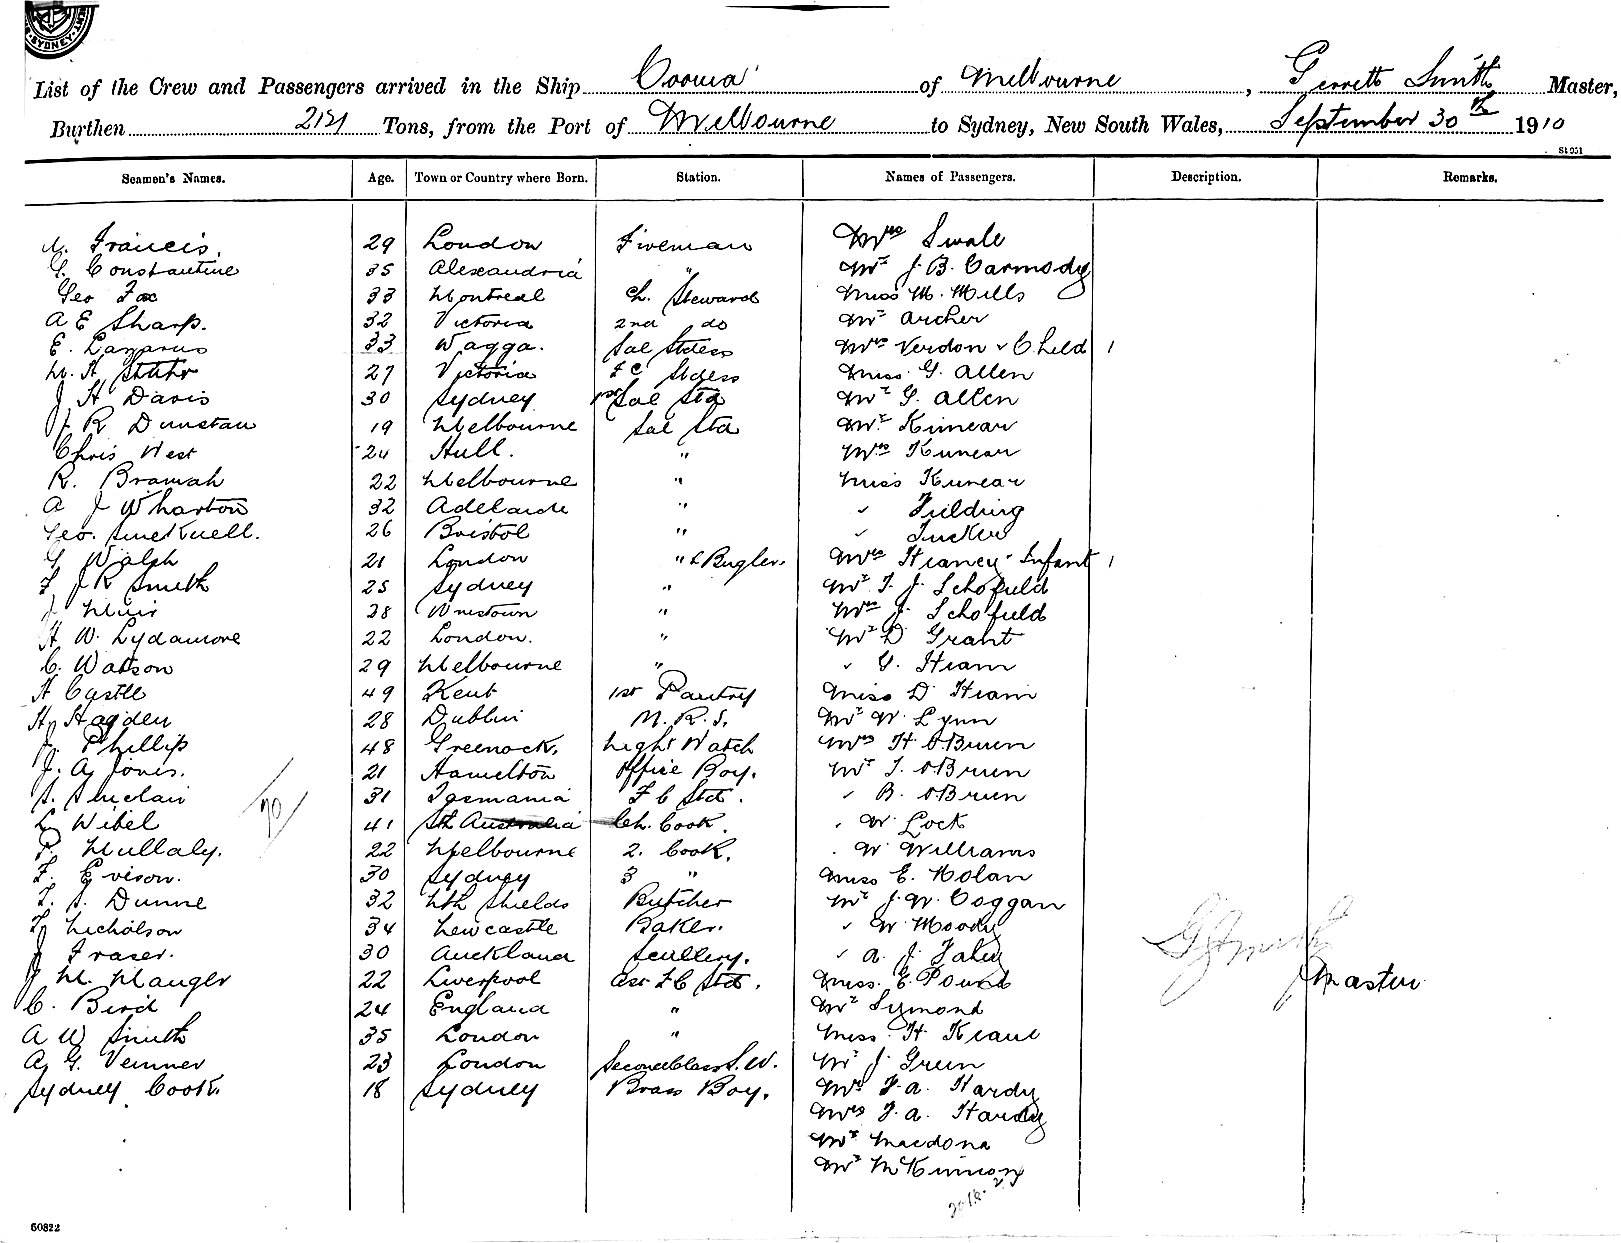 SYDNEY
List of the Crew and Passengers arrived in the Ship Cooma of Melbourne, Gerrett Smith Master,
Burthen 2121 Tons, from the Port of Melbourne to Sydney, New South Wales, September 30th 1910
St 951
Seamen's Names. Age. Town or Country where Born. Station. Names of Passengers. Description. Remarks.
Francis. 29 London Fireman Mrs Swale
G. Constantine 35 Alexandria " Mr J. B. Carmody
Geo Fox 33 Montreal Ch. Steward Miss M. Mills
A E Sharp. 32 Victoria 2nd do Mr Archer
E. Lazarus 33 Wagga. Sal Stdess Mrs Verdon & Child 1
27 Victoria F C Stdess Miss G. Allen
J H Davis 30 Sydney 1st Sal Std Mr G. Allen
J. R Dunstan 19 Melbourne Sal Std Mr Kinnear
Chris West 24 Hull. " Mrs Kinnear
R. Bramah 22 Melbourne " Miss Kinnear
A J Wharton 32 Adelaide " " Fielding
Geo. Smetknell. 26 Bristol " " Tucker
G Walsh 21 London " & Bugler. Mrs Heaney & Infant 1
F J R Smith 25 Sydney " Mr F. J. Schofield
J Muir 38 " Mrs J. Schofield
H W. Lydamore 22 London. " Mr D Grant
C. Watson 29 Melbourne " " G. Hiam
H Castle 49 Kent 1st Pantry Miss D Hiam
Hy Hagden 28 Dublin M. R. S. Mr W. Lynn
J. Phillip 48 Greenock. Night Watch Mrs H O'Brien
J. A Jones. 21 Hamelton Office Boy. Mr T. O'Brien
S. Sinclair 31 Tasmania F C Std. " B. O'Brien
L Wibel 41 Sth Australia Ch. Cook. " W Lock
P. Mullaly. 22 Melbourne 2. Cook. " W Williams
F. Evison. 30 Sydney 3 " Miss E. Nolan
T. S. Dunne 32 Nth Shields Butcher Mr J. W. Coggan
F Nicholson 34 Newcastle Baker. " W Moody
J Fraser. 30 Auckland Scullery. " A. J. Fahy
J M. Mauger 22 Liverpool Ass F C Std. Miss. E. Pound
C. Bird 24 England " Mr Symond
A W Smith 35 London " Miss. H Keane
A G. Venner 23 London Second Class S. W. Mr J Green
Sydney Cook. 18 Sydney Brass Boy. Mr F. A. Hardy
Mrs F. A. Hardy
Mr Macdona
Mr McKinnon
Master
60822